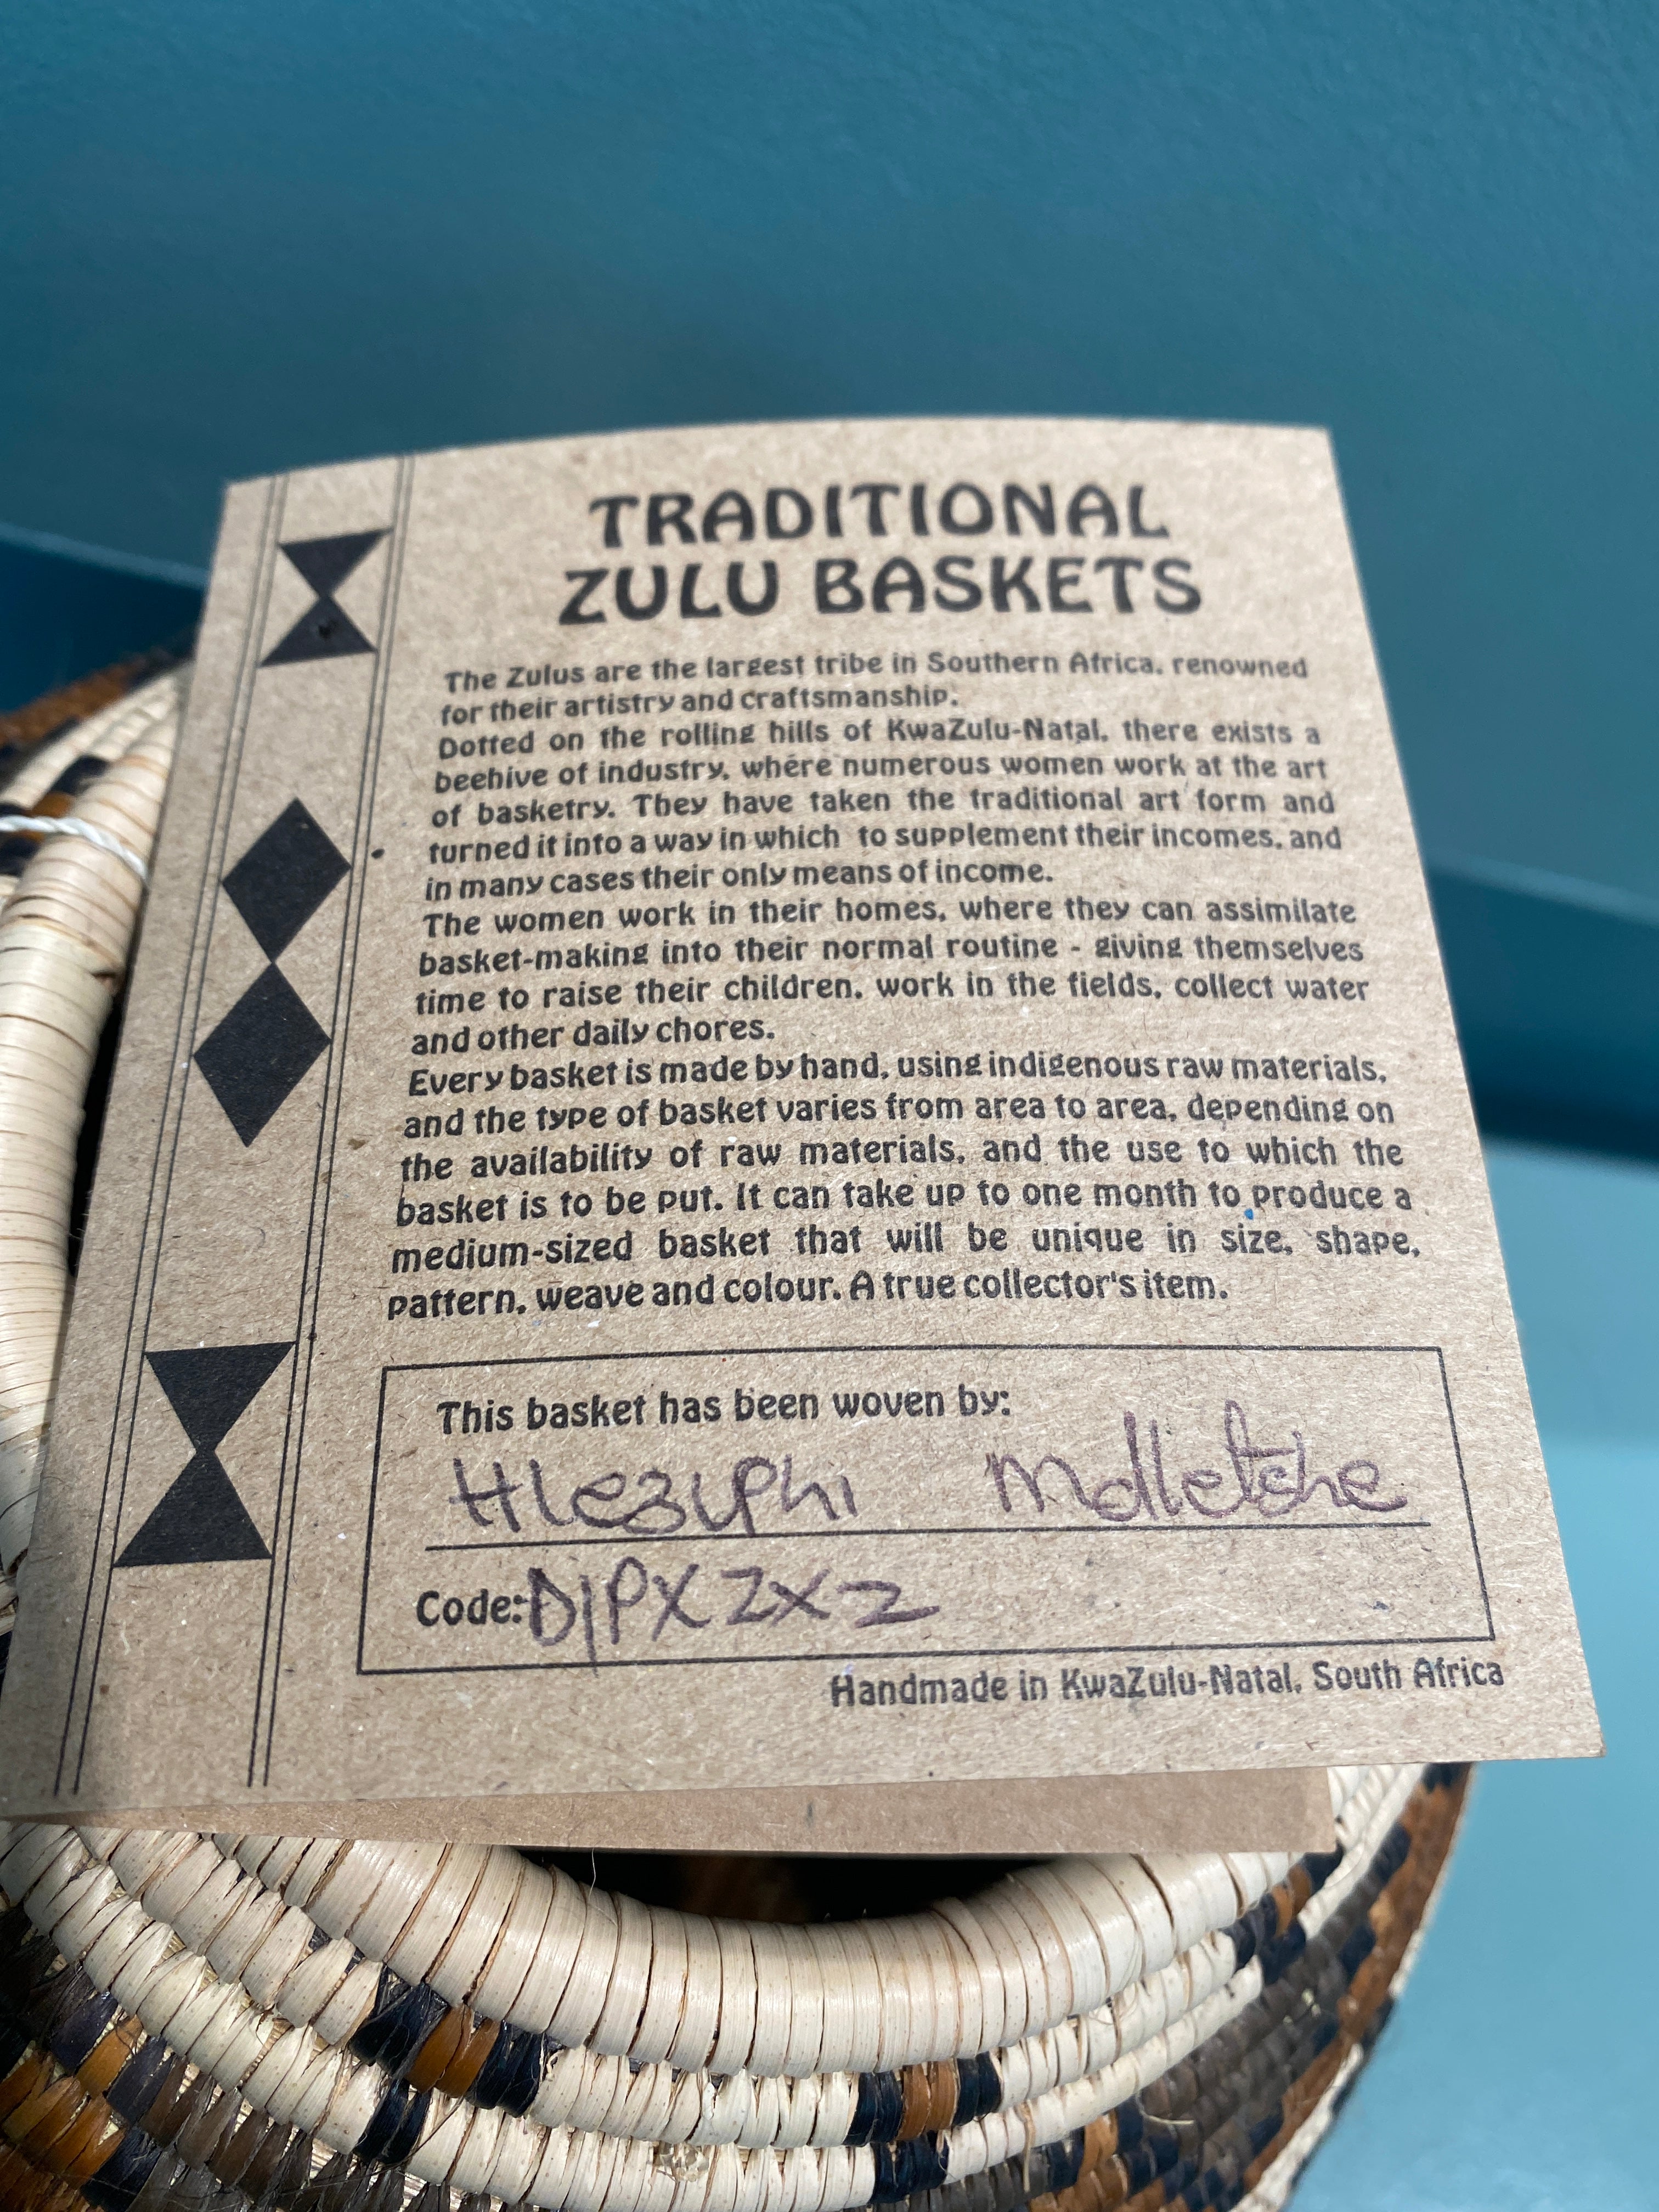 TRADITIONAL
ZULU BASKETS
The Zulus are the largest tribe in Southern Africa, renowned
for their artistry and craftsmanship.
Dotted on the rolling hills of KwaZulu-Natal, there exists a
beehive of industry, where numerous women work at the art
of basketry. They have taken the traditional art form and
turned it into a way in which to supplement their incomes, and
in many cases their only means of income.
The women work in their homes, where they can assimilate
basket-making into their normal routine - giving themselves
time to raise their children, work in the fields, collect water
and other daily chores.
Every basket is made by hand, using indigenous raw materials,
and the type of basket varies from area to area, depending on
the availability of raw materials, and the use to which the
basket is to be put. It can take up to one month to produce a
medium-sized basket that will be unique in size, shape,
pattern, weave and colour. A true collector's item.
This basket has been woven by:
Code: D/PXZXZ
Handmade in KwaZulu-Natal, South Africa